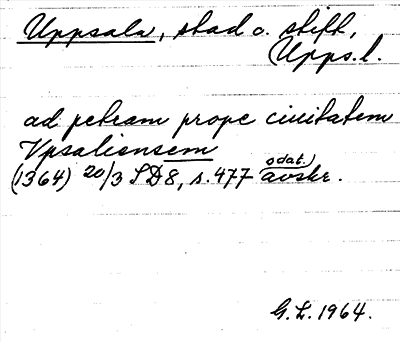 Uppsala, stad o. stift,
Upps. l.
ad petram prope ciuitatem
Vpsaliensem
(1364) 20/3 SD8, s. 477 odat. avskr.
G. L. 1964.